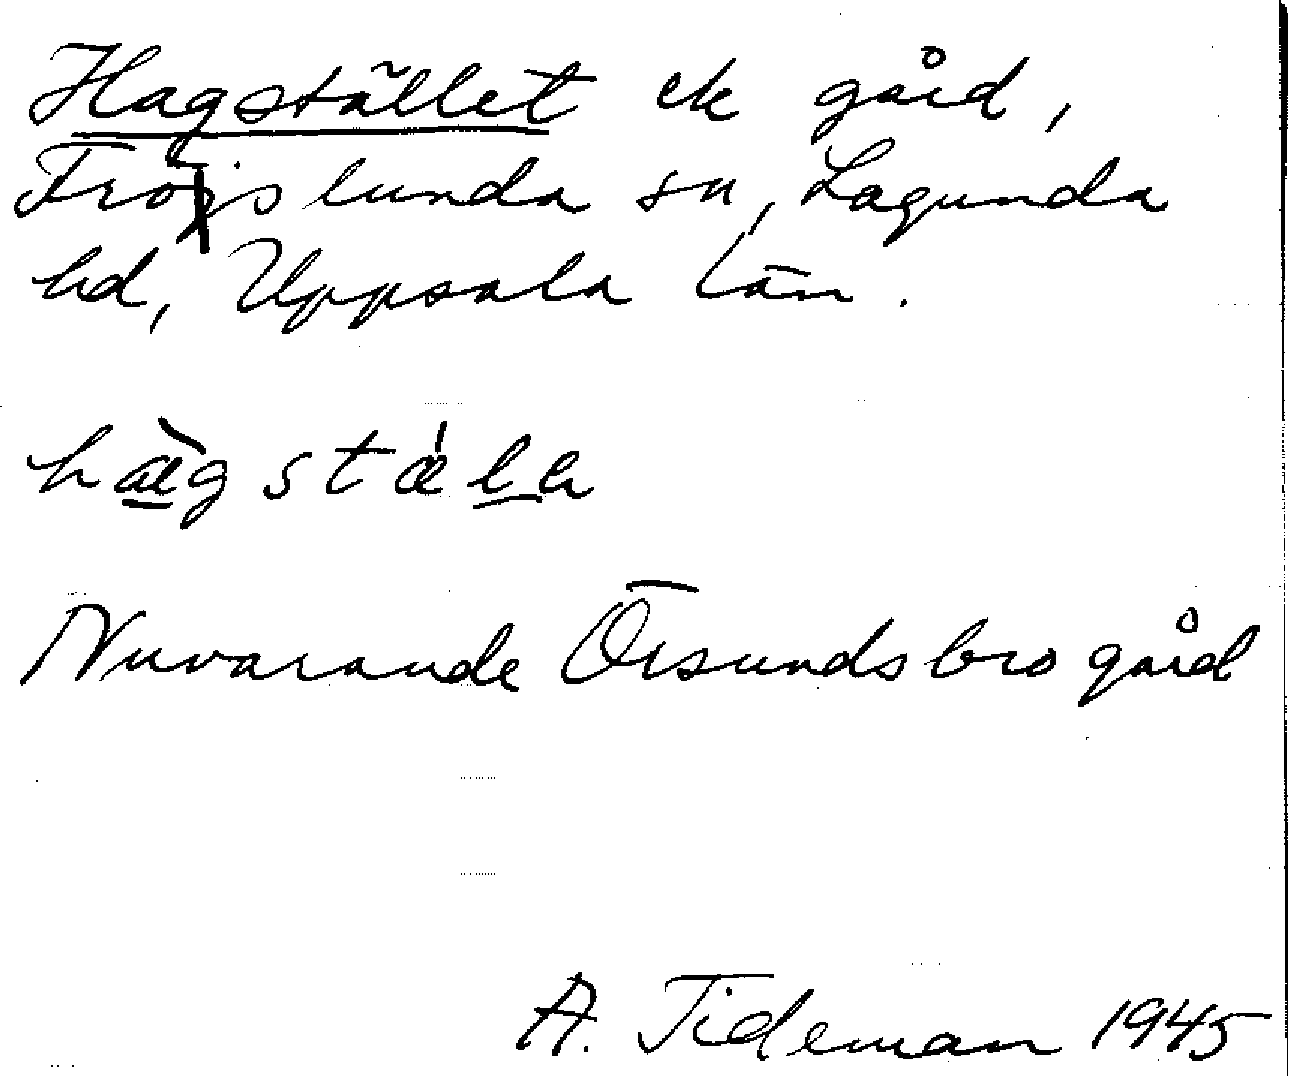 Hagstället ek gård,
Fröslunda sn, Lagunda
hd, Uppsala län.
hàgstæ̍la
Nuvarande Örsundsbro gård
A. Tideman 1945